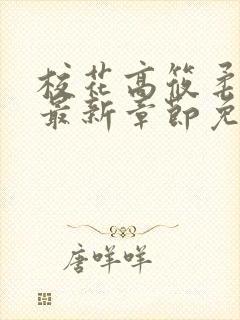 校花高筱柔
最新章节免
唐咩咩